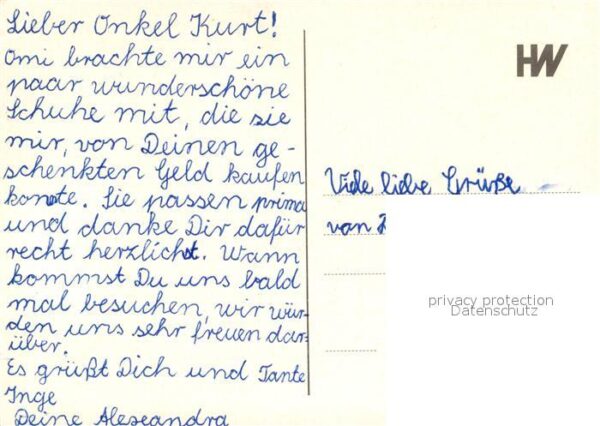 Lieber Onkel Kurt!
Omi brachte mir ein
paar wunderschöne
Schuhe mit, die sie
mir, von Deinen ge-
schenkten Geld kaufen
konnte. Sie passen prima
und danke Dir dafür
recht herzlichst. Wann
kommst Du uns bald
mal besuchen, wir wür-
den uns sehr freuen dar-
über.
Es grüßt Dich und Tante
Inge
Deine Alexandra
HW
Viele liebe Grüße
von
privacy protection
Datenschutz